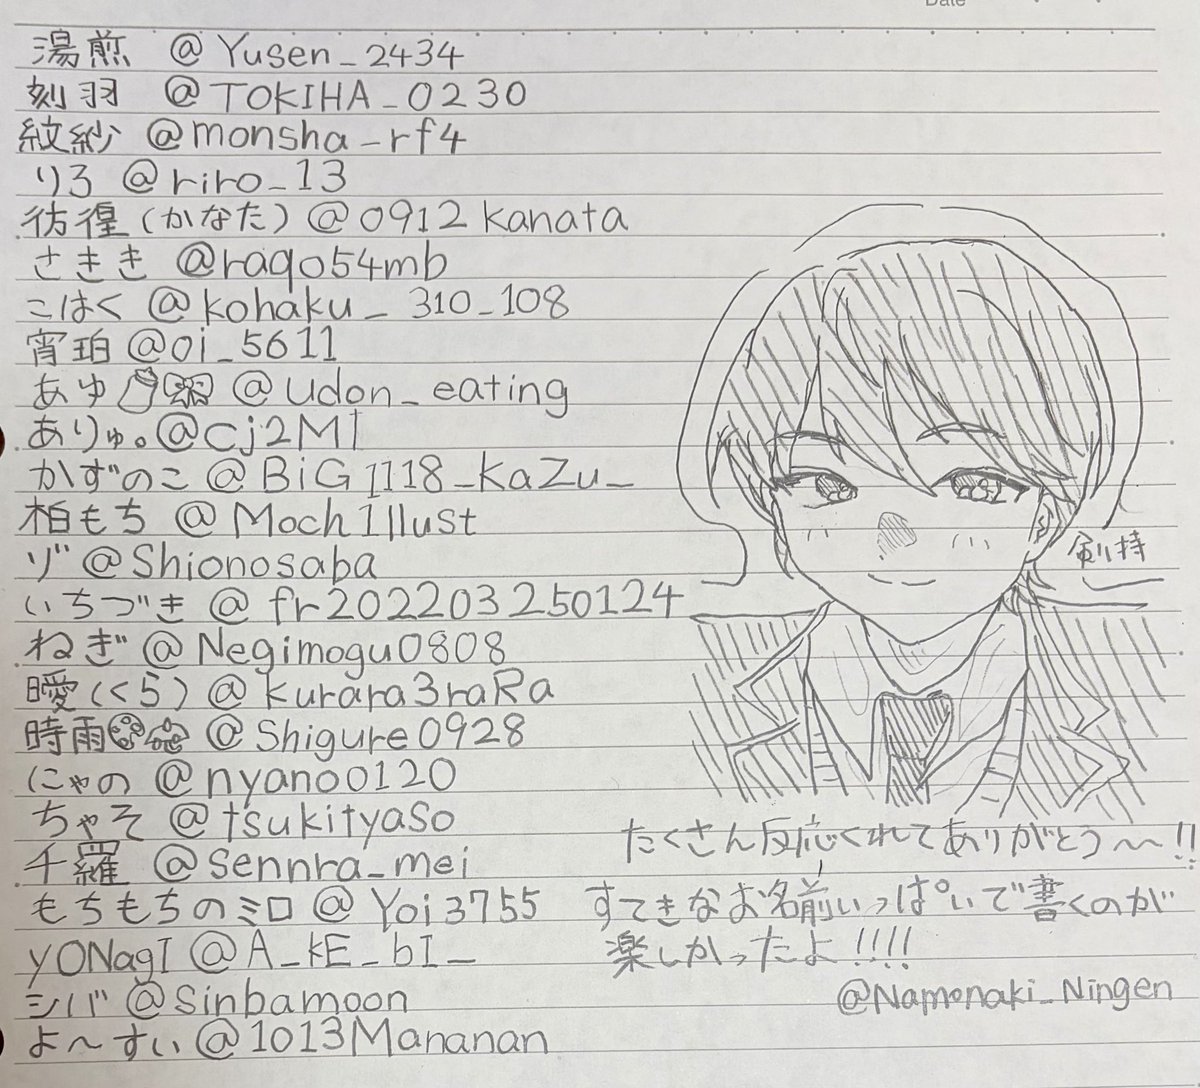 Date
湯煎 @Yusen_2434
刻羽 @TOKIHA_0230
紋紗 @monsha_rf4
りろ @riro_13
彷徨(かなた) @0912kanata
さきき @raqo54mb
こはく @kohaku_310_108
宵珀 @oi_5611
あゆ @Udon_eating
ありゅ。@cj2MI
かずのこ @BiG1118_KaZu_
柏もち @Moch1llust
ヅ @Shionosaba
いちづき @fr20220325 0124
ねぎ @Negimogu0808
曖(くら) @kurara3raRa
時雨 @Shigure0928
にゃの @nyano0120
ちゃそ @tsukityaso
千羅 @sennra_mei
もちもちのミロ @Yoi3755
yONagI @A_kE_bI_
シバ @sinbamoon
よ〜すい @1013Mananan
剣持
たくさん反応くれてありがとう〜!!
すてきなお名前いっぱいで書くのが
楽しかったよ!!!!
@Namonaki_Ningen